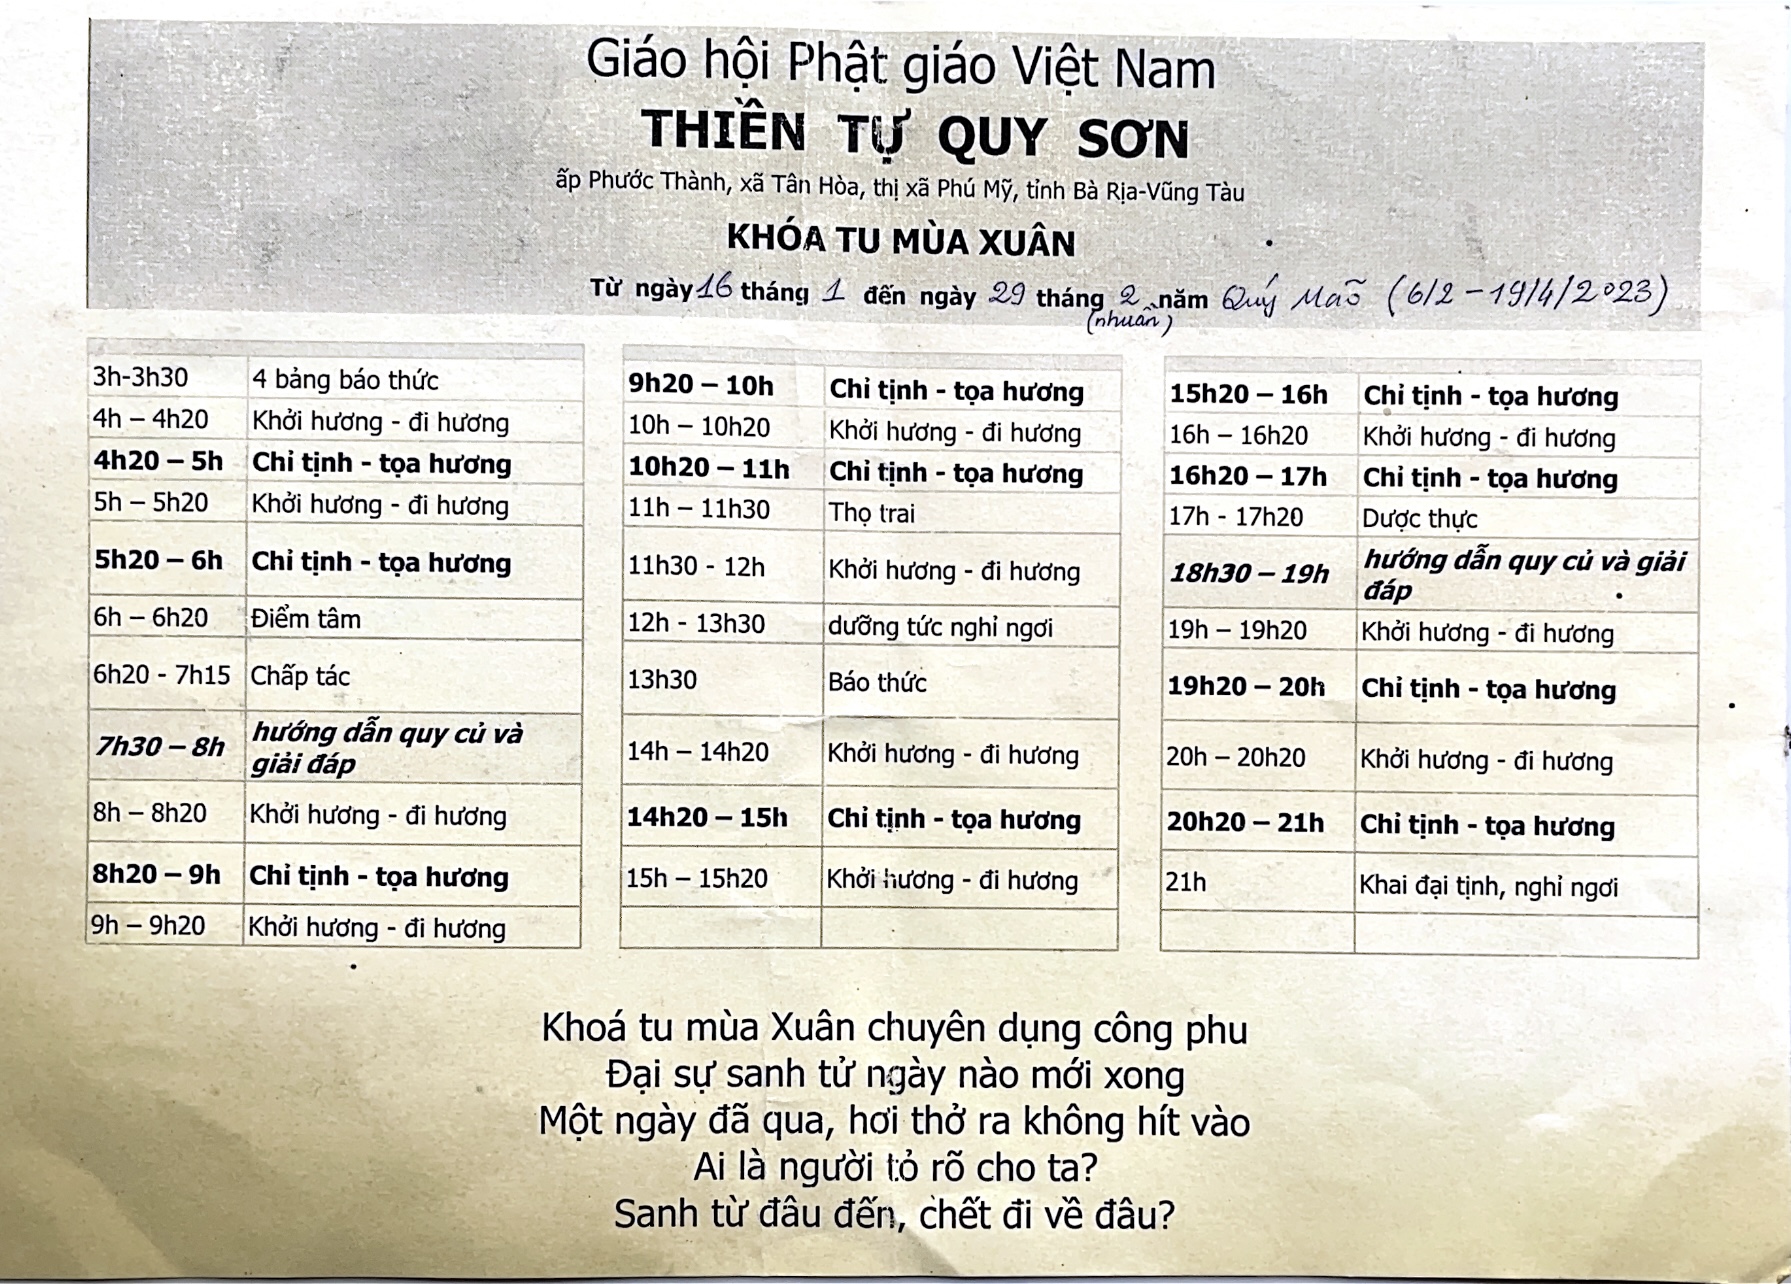 Giáo hội Phật giáo Việt Nam
THIỀN TỰ QUY SƠN
ấp Phước Thành, xã Tân Hòa, thị xã Phú Mỹ, tỉnh Bà Rịa-Vũng Tàu
KHÓA TU MÙA XUÂN
Từ ngày 16 tháng 1 đến ngày 29 tháng 2 năm Quý Mão (6/2 - 19/4/2023)
(nhuần)
3h-3h30 4 bảng báo thức
4h – 4h20 Khởi hương - đi hương
4h20 – 5h Chỉ tịnh - tọa hương
5h – 5h20 Khởi hương - đi hương
5h20 – 6h Chỉ tịnh - tọa hương
6h – 6h20 Điểm tâm
6h20 - 7h15 Chấp tác
7h30 – 8h hướng dẫn quy củ và
giải đáp
8h – 8h20 Khởi hương - đi hương
8h20 – 9h Chỉ tịnh - tọa hương
9h – 9h20 Khởi hương - đi hương
9h20 – 10h Chỉ tịnh - tọa hương
10h – 10h20 Khởi hương - đi hương
10h20 – 11h Chỉ tịnh - tọa hương
11h – 11h30 Thọ trai
11h30 - 12h Khởi hương - đi hương
12h - 13h30 dưỡng tức nghỉ ngơi
13h30 Báo thức
14h – 14h20 Khởi hương - đi hương
14h20 – 15h Chỉ tịnh - tọa hương
15h – 15h20 Khởi hương - đi hương
15h20 – 16h Chỉ tịnh - tọa hương
16h – 16h20 Khởi hương - đi hương
16h20 – 17h Chỉ tịnh - tọa hương
17h - 17h20 Dược thực
18h30 – 19h hướng dẫn quy củ và giải
đáp
19h – 19h20 Khởi hương - đi hương
19h20 – 20h Chỉ tịnh - tọa hương
20h – 20h20 Khởi hương - đi hương
20h20 – 21h Chỉ tịnh - tọa hương
21h Khai đại tịnh, nghỉ ngơi
Khoá tu mùa Xuân chuyên dụng công phu
Đại sự sanh tử ngày nào mới xong
Một ngày đã qua, hơi thở ra không hít vào
Ai là người tỏ rõ cho ta?
Sanh từ đâu đến, chết đi về đâu?